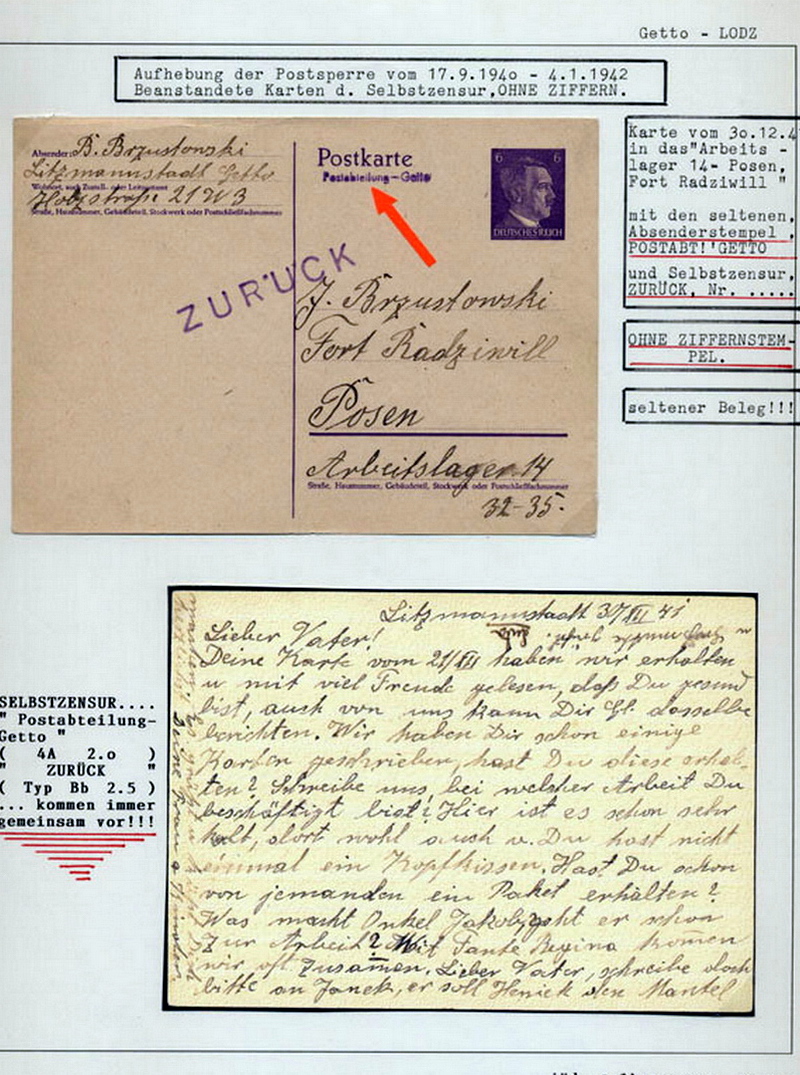 Getto - LODZ
Aufhebung der Postsperre vom 17.9.194o - 4.1.1942
Beanstandete Karten d. Selbstzensur,OHNE ZIFFERN.
Absender: B. Brzustowski
Litzmannstadt Getto
Wohnort, auch Zustell- oder Leitpostamt
Holzstraße 21 W 3
Straße, Hausnummer, Gebäudeteil, Stockwerk oder Postschließfachnummer
Postkarte
Postabteilung-Getto
6 6
DEUTSCHES REICH
ZURÜCK
J. Brzustowski
Fort Radziwill
Posen
Arbeitslager 14
Straße, Hausnummer, Gebäudeteil, Stockwerk oder Postschließfachnummer
32-35.
Karte vom 3o.12.4
in das"Arbeits -
lager 14- Posen,
Fort Radziwill "
mit den seltenen,
Absenderstempel ,
POSTABT!'GETTO
und Selbstzensur,
ZURÜCK, Nr. .....
OHNE ZIFFERNSTEM-
PEL.
seltener Beleg!!!
SELBSTZENSUR....
" Postabteilung-
Getto "
( 4A 2.o )
" ZURÜCK "
( Typ Bb 2.5 )
... kommen immer
gemeinsam vor!!!
Litzmannstadt XII 41
Lieber Vater!
Deine Karte vom 21/XII haben wir erhalten
u mit viel Freude gelesen, daß Du gesund
bist, auch von uns kann Dir dasselbe
berichten. Wir haben Dir schon einige
Karten geschrieben, hast Du diese erhal-
ten? Schreibe uns, bei welcher Arbeit Du
beschäftigt bist? Hier ist es schon sehr
kalt, dort wohl auch u. Du hast nicht
einmal ein Kopfkissen. Hast Du schon
von jemanden ein Paket erhalten?
Was macht Onkel Jakob, geht er schon
zur Arbeit? Mit Tante Regina kom̄en
wir oft zusam̄en. Lieber Vater, schreibe doch
bitte an Janek, er soll Heniek den Mantel